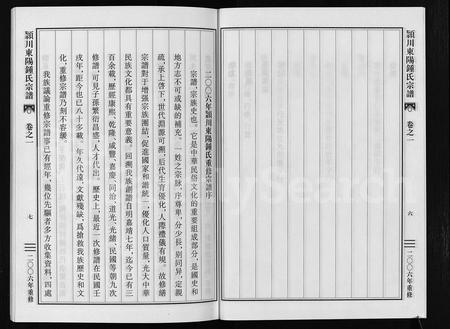 潁川東陽鍾氏宗譜
卷之一
六
二〇〇六年重修
二〇〇六年潁川東陽鍾氏重修宗譜序
宗譜，宗族史也。它是中華民俗文化的重要組成部分，是國史和
地方志不可或缺的補充。一姓之宗脉，序尊卑，分少長，别同异，定親
疏，承上啓下，世代淵源可溯，后代生育優化，人際禮儀有規。故修繕
宗譜對于增强宗族團結，促進國家和諧統一，優化人口質量，光大中華
民族文化都具有重要意義。回溯我族創譜自明嘉靖七年，迄今已有三
百余載，歷經康熙、乾隆、咸豐、嘉慶、同治、道光、光緒、民國等朝九次
修譜，可見子孫繁衍昌盛，人才代出。歷史上，最近一次修譜在民國壬
戌年，距今也已八十多載。年久代遠，文獻殘缺，爲搶救我族歷史和文
化，重修宗譜乃刻不容緩。
我族議論重修宗譜事已有經年，幾位先驅者多方收集資料，四處
潁川東陽鍾氏宗譜
卷之一
七
二〇〇六年重修